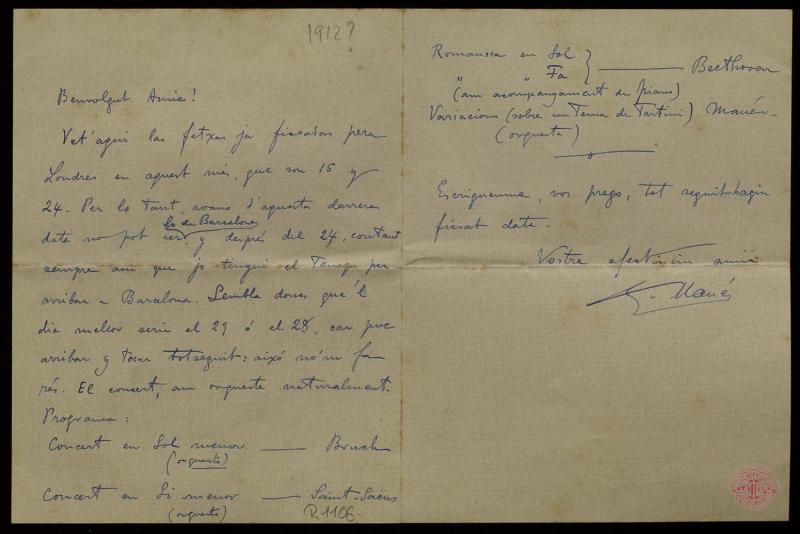 1912?
Benvolgut Amic!
Vet'aqui las fetxas ja ficsadas pera
Londres en aquest mes, que son 15 y
24. Per lo tant, avans d'aquesta darrera
lo de Barcelona
data no pot ser, y després del 24, contant
sempre am que jo tingui el temps per
arribar a Barcelona. Sembla doncs que'l
dia mellor seria el 29 ó el 28, car puc
arribar y tocar totseguit: aixó no'm fa
rés. El concert, am orquesta naturalment.
Programa:
Concert en Sol menor — Bruch
(orquesta)
Concert en Si menor — Saint-Saëns
(orquesta)
R.1106
Romanssa en Sol
" " Fa } — Beethoven
(am acompanyament de piano)
Variacions (sobre un Tema de Tartini) Manén-
(orquesta)
Escrigueume, vos prego, tot seguit hagin
ficsat data.
Vostre afectíssim amic
J. Manén